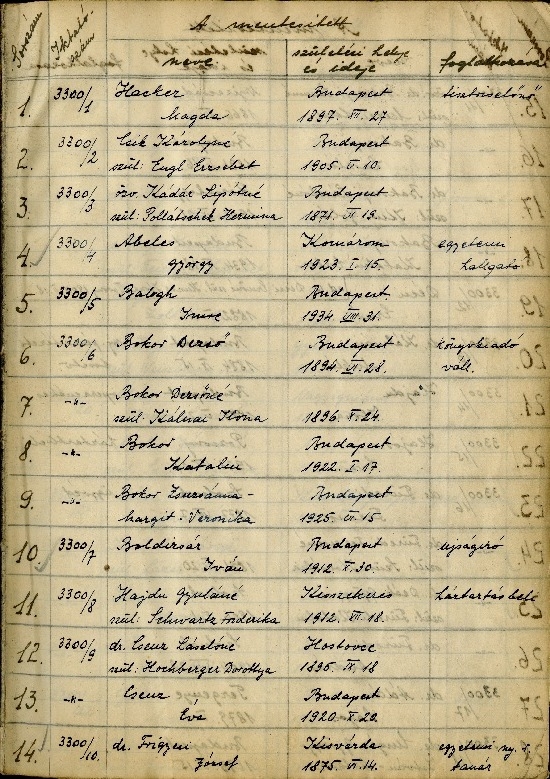 Sorszám
Iktató-
szám
A mentesített
neve
születési helye
és ideje
foglalkozása
1. 3300/1 Hacker Budapest tisztviselőnő
Magda 1897. VII. 27
2. 3300/2 Csik Károlyné Budapest
szül: Engl Erzsébet 1905. VI. 10.
3. 3300/3 özv. Kádár Lipótné Budapest
szül: Pollatschek Hermina 1871. VI. 19.
4. 3300/4 Abeles Komárom egyetemi
György 1923. I. 15. hallgató
5. 3300/5 Balogh Budapest
Imre 1934. VIII. 31.
6. 3300/6 Bokor Dezső Budapest könyvkiadó
1894. VI. 28. váll.
7. -"- Bokor Dezsőné
szül: Kálnai Ilona 1896. X. 24.
8. -"- Bokor Budapest
Katalin 1922. I. 17.
9. -"- Bokor Zsuzsánna-
Margit-Veronika Budapest
1925. VI. 15
10. 3300/7 Boldizsár Budapest ujságiró
Iván 1912. X. 30.
11. 3300/8 Hajdu Gyuláné Kisszekeres háztartásbeli
szül: Schwartz Friderika 1912. VII. 18.
12. 3300/9 dr. Cseuz Lászlóné Hostovce
szül: Hochberger Dorottya 1895. IX. 18
13. -"- Cseuz Budapest
Éva 1920. X. 20.
14. 3300/10. dr. Frigyesi Kisvárda egyetemi ny. r.
József 1875. VI. 14. tanár